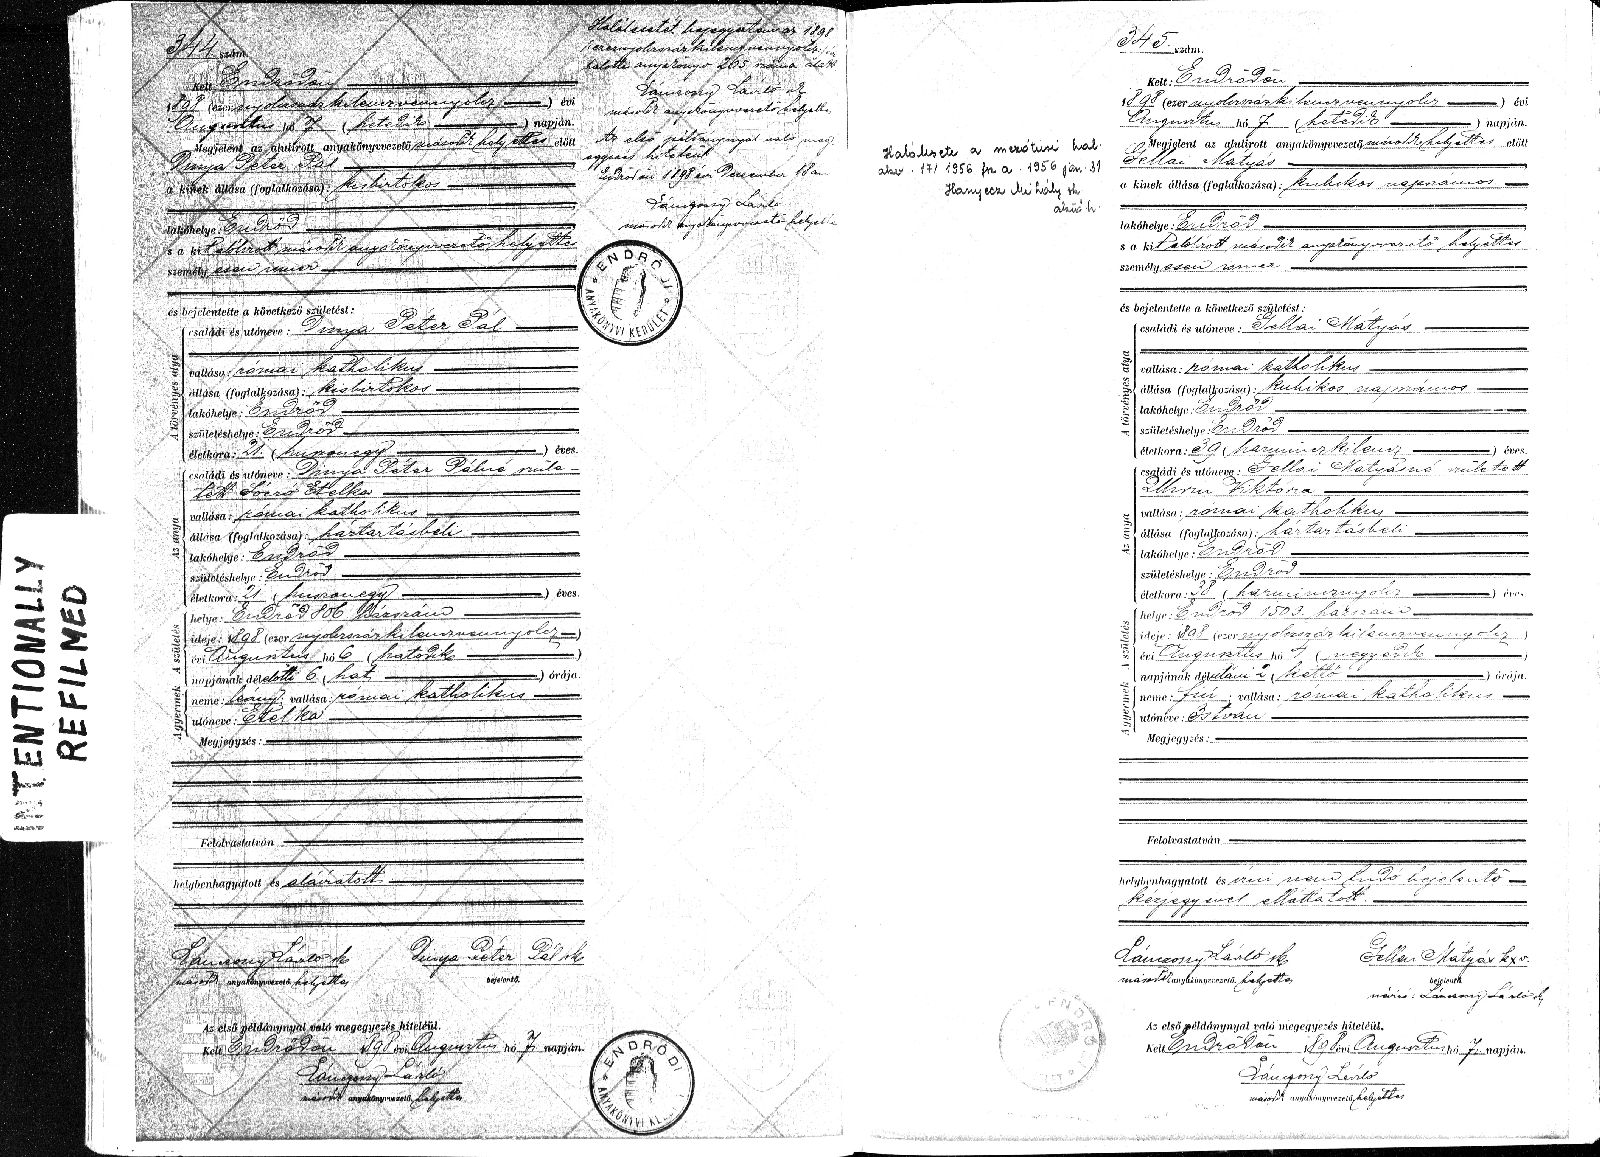 INTENTIONALLY
REFILMED
344 szám.
Kelt: Endrődön
1898 (ezernyolczszázkilenczvennyolcz) évi
Augusztus hó 7 (hetedik) napján.
Megjelent az alulirott anyakönyvezető másodk helyettes előtt
Dinya Péter Pál
a kinek állása (foglalkozása): kisbirtokos
lakóhelye: Endrőd
s a kit alólirott másodk anyakönyvvezető helyettes
személyesen ismer
és bejelentette a következő születést:
A törvényes atya
családi és utóneve: Dinya Péter Pál
vallása: római katholikus
állása (foglalkozása): kisbirtokos
lakóhelye: Endrőd
születéshelye: Endrőd
életkora: 21 (huszonegy) éves.
Az anya
családi és utóneve: Dinya Péter Pálné szüle-
tett Etelka
vallása: római katholikus
állása (foglalkozása): háztartásbeli
lakóhelye: Endrőd
születéshelye: Endrőd
életkora: 21 (huszonegy) éves.
A születés
helye: Endrőd 806 házszám
ideje: 1898 (ezernyolczszázkilenczvennyolcz)
évi Augusztus hó 6 (hatodik)
napjának délelőtti 6 (hat) órája.
A gyermek
neme: leány; vallása: római katholikus
utóneve: Etelka
Megjegyzés:
Felolvastatván
helybenhagyatott és aláíratott
Lánczony László sk
másodk anyakönyvvezető, helyettes
Dinya Péter Pál sk
bejelentő.
Az első példánynyal való megegyezés hiteléül.
Kelt Endrődön 1898 évi Augusztus hó 7 napján.
Lánczony László
másodk anyakönyvvezető, helyettes
Halálesetét bejegyeztem az 1898
ezernyolczszázkilenczvennyolcz évi
halotti anyakönyv 265 száma alatt
Lánczony László sk
másodk anyakönyvvezető helyettes
Az első példánynyal való meg-
egyezés hiteleül
Endrődön 1898 évi December
Lánczony László
másodk anyakönyvvezető helyettes
ENDRŐDI
ANYAKÖNYVI KERÜLET
ENDRŐDI
ANYAKÖNYVI KERÜLET
Halálesete a mezőtúri hal.
akv. 17/1956 fsz a. 1956 jan. 31
Hanyecz Mihály sk
akvv h.
345 szám.
Kelt: Endrődön
1898 (ezernyolczszázkilenczvennyolcz) évi
Augusztus hó 7 (hetedik) napján.
Megjelent az alulirott anyakönyvvezető másodk helyettes előtt
Gellai Mátyás
a kinek állása (foglalkozása): kubikos napszámos
lakóhelye: Endrőd
s a kit alólirott másodk anyakönyvvezető helyettes
személyesen ismer
és bejelentette a következő születést:
A törvényes atya
családi és utóneve: Gellai Mátyás
vallása: római katholikus
állása (foglalkozása): kubikos napszámos
lakóhelye: Endrőd
születéshelye: Endrőd
életkora: 39 (harminczkilencz) éves.
Az anya
családi és utóneve: Gellai Mátyásné született
Viktória
vallása: római katholikus
állása (foglalkozása): háztartásbeli
lakóhelye: Endrőd
születéshelye: Endrőd
életkora: 38 (harmincznyolcz) éves.
A születés
helye: Endrőd 1503. házszám
ideje: 1898 (ezernyolczszázkilenczvennyolcz)
évi Augusztus hó 4 (negyedik)
napjának délutáni 2 (kettő) órája.
A gyermek
neme: fiú; vallása: római katholikus
utóneve: István
Megjegyzés:
Felolvastatván
helybenhagyatott és írni nem tudó bejelentő
kézjegyével elláttatott.
Lánczony László sk
másodk anyakönyvvezető, helyettes
Gellai Mátyás kxv.
bejelentő.
Lánczony László sk
ENDRŐDI
Az első példánynyal való megegyezés hiteléül.
Kelt Endrődön 1898 évi Augusztus hó 7. napján.
Lánczony László
másodk anyakönyvvezető, helyettes